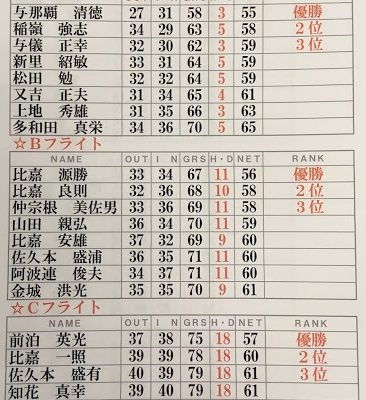 与那覇 清徳 27 31 58 3 55 優勝
稲嶺 強志 34 29 63 5 58 2位
与儀 正幸 32 30 62 3 59 3位
新里 紹敏 33 31 64 5 59
松田 勉 32 32 64 5 59
又吉 正夫 31 34 65 4 61
上地 秀雄 31 35 66 3 63
多和田 真栄 34 36 70 5 65
☆Bフライト
NAME OUT I N GRS H・D NET RANK
比嘉 源勝 33 34 67 11 56 優勝
比嘉 良則 32 36 68 10 58 2位
仲宗根 美佐男 33 36 69 11 58 3位
山田 親弘 36 34 70 11 59
比嘉 安雄 37 32 69 9 60
佐久本 盛浦 36 35 71 11 60
阿波連 俊夫 34 37 71 11 60
金城 洪光 35 35 70 9 61
☆Cフライト
NAME OUT I N GRS H・D NET RANK
前泊 英光 37 38 75 18 57 優勝
比嘉 一照 39 39 78 18 60 2位
佐久本 盛有 40 39 79 18 61 3位
知花 真幸 39 40 79 18 61